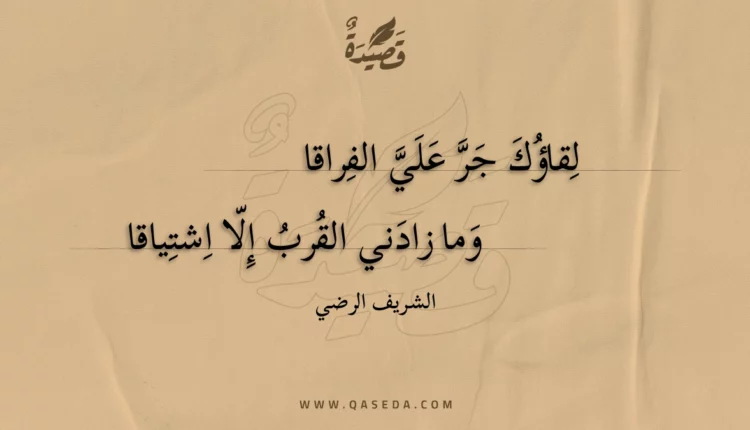 قَصِيدَةٌ
لِقاؤُكَ جَرَّ عَلَيَّ الفِراقا
وَما زادَني القُربُ إِلّا اِشتِياقا
الشريف الرضي
WWW.QASEDA.COM